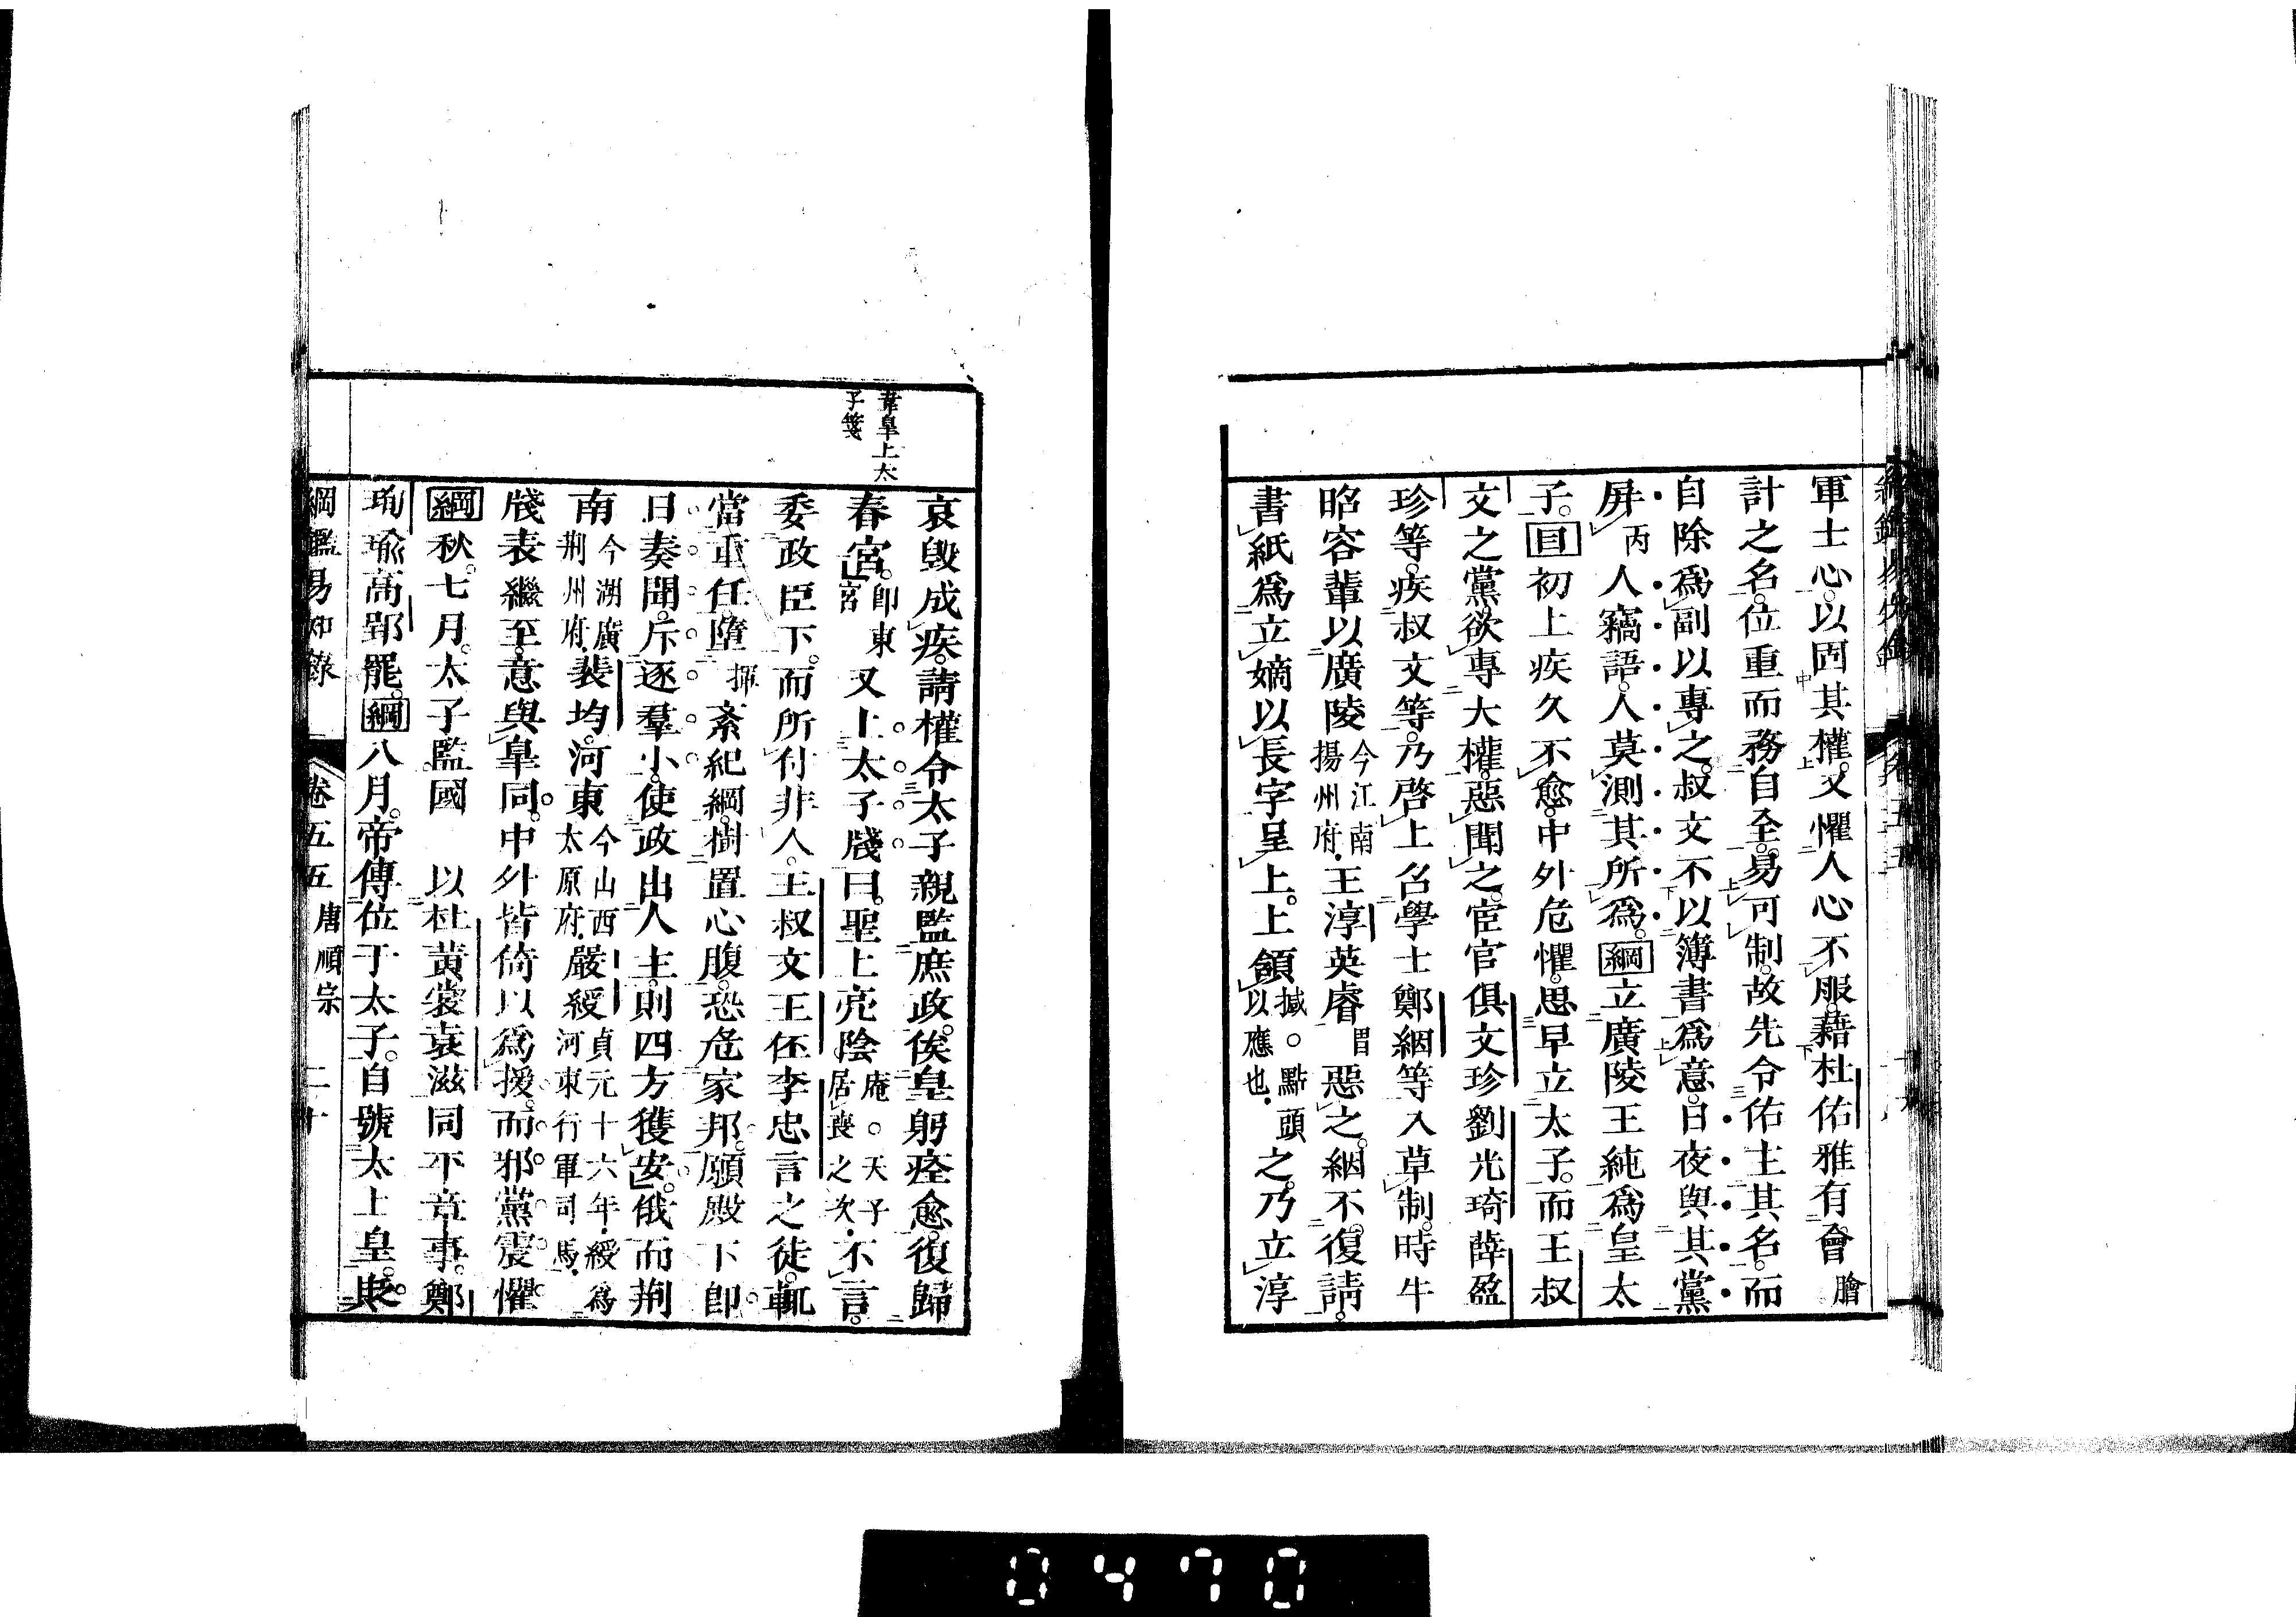 軍士心。以固其權。又懼人心不服。藉杜佑雅有會膾
計之名。位重而務自全。易可制。故先令佑主其名。而
自除爲副以專之。叔文不以簿書爲意。日夜與其黨
屏丙人竊語。人莫測其所爲。綱立廣陵王純爲皇太
子。目初上疾久不愈。中外危懼。思早立太子。而王叔
文之黨欲專大權。惡聞之。宦官俱文珍劉光琦薛盈
珍等。疾叔文等。乃啓上召學士鄭絪等入草制。時牛
昭容輩以廣陵今江南揚州府。王淳英睿冒惡之。絪不復請。
書紙爲立嫡以長字呈上。上頷撼。點頭以應也。之。乃立淳
綱鑑易知錄
卷五五
韋皐上太
子箋
哀毀成疾。請權令太子親監庶政。俟皇躬痊愈。復歸
春宮。卽東宮又上太子牋曰。聖上亮陰庵。天子居喪之次。不言。
委政臣下。而所付非人。王叔文王伾李忠言之徒。輒
當重任。墮揮紊紀綱。樹置心腹。恐危家邦。願殿下卽
日奏聞。斥逐羣小。使政出人主。則四方獲安。俄而荆
南今湖廣荆州府。裴均。河東今山西太原府。嚴綬貞元十六年。綬爲河東行軍司馬。
牋表繼至。意與皐同。中外皆倚以爲援。而邪黨震懼
綱秋。七月。太子監國 以杜黃裳袁滋同平章事。鄭
珣瑜高郢罷。綱八月。帝傳位于太子。自號太上皇。貶其
綱鑑易知錄 卷五五 唐順宗 二十
0470